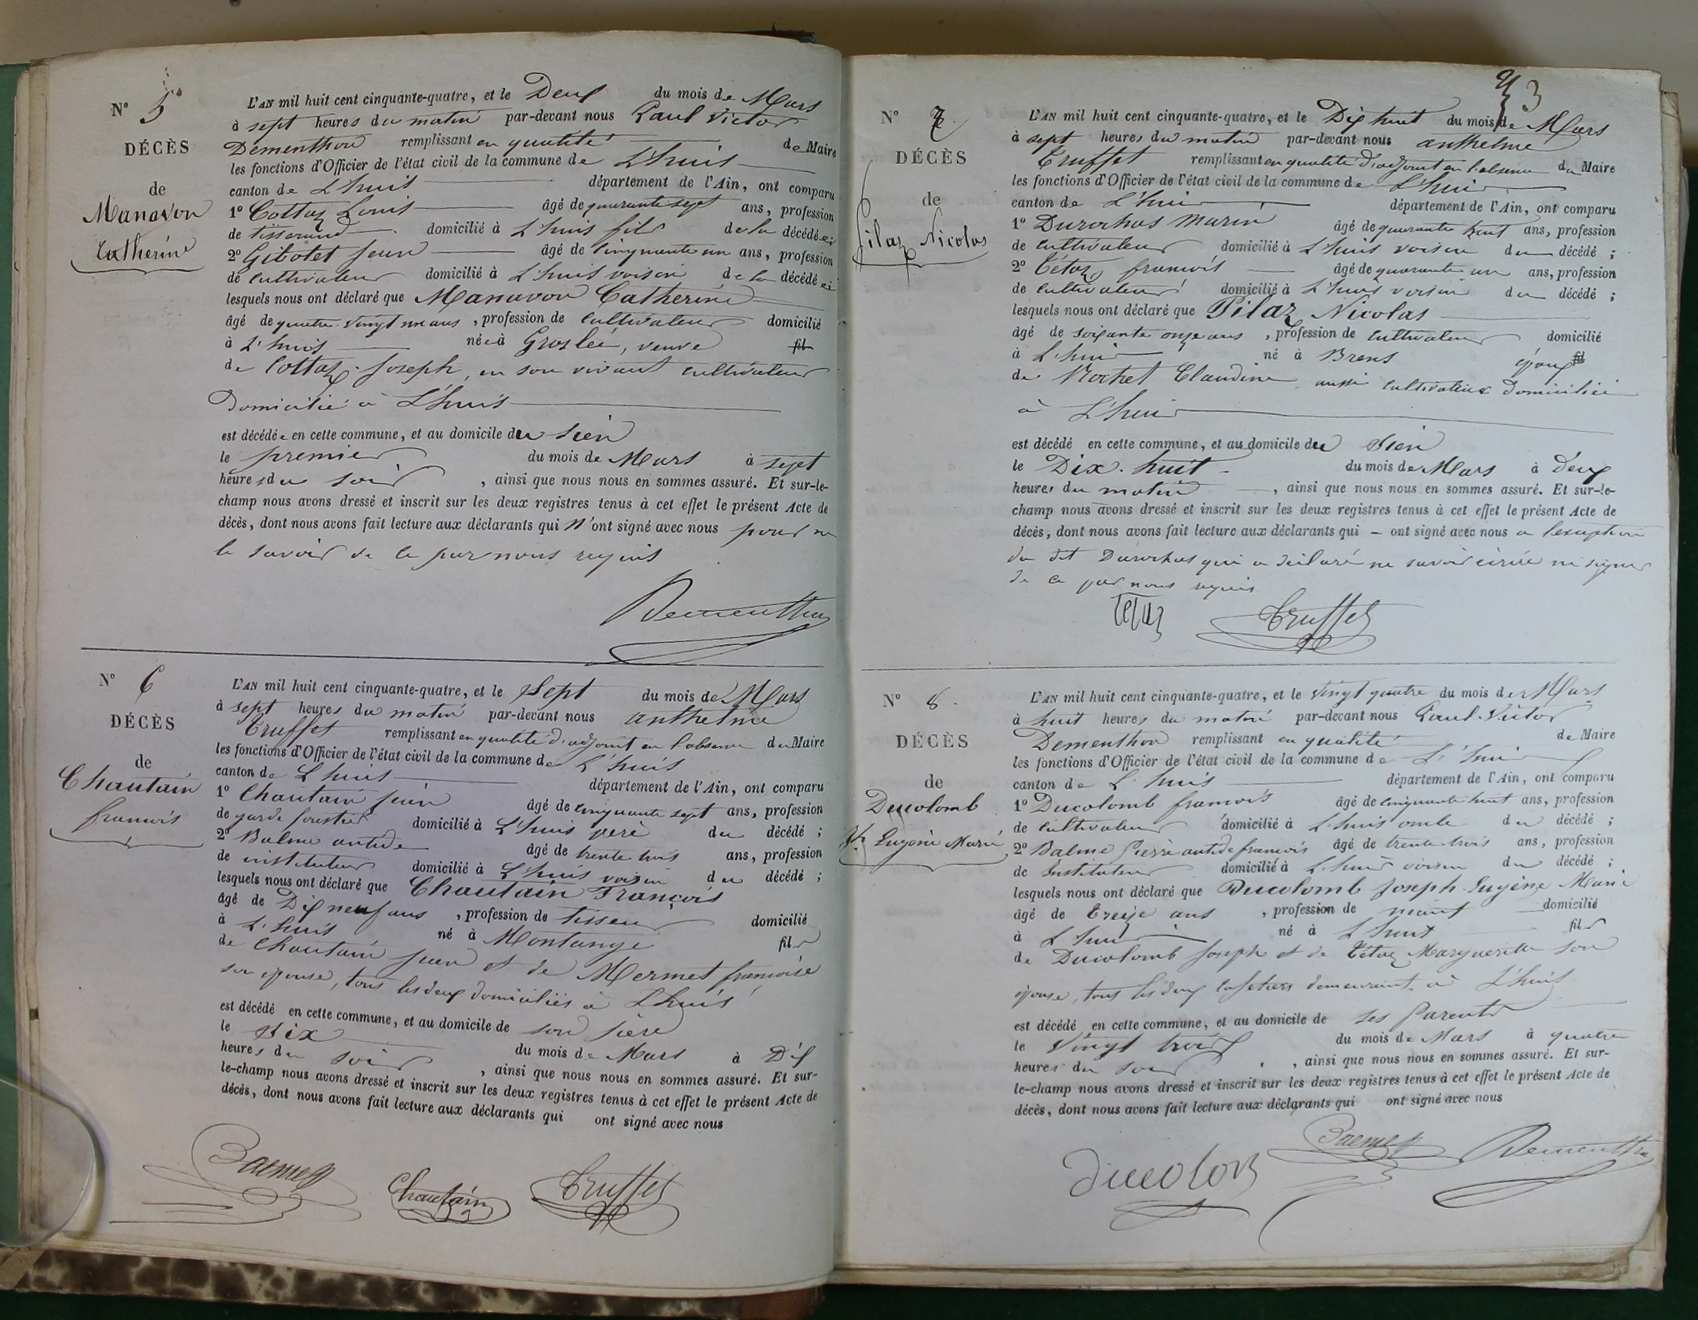 N° 5
DÉCÈS
de
Manavon
Catherine
L'AN mil huit cent cinquante-quatre, et le Deux du mois de Mars
à sept heures du matin par-devant nous Paul Victor
Dementhon remplissant en qualité de Maire
les fonctions d'Officier de l'état civil de la commune de L'huis
canton de L'huis département de l'Ain, ont comparu
1° Cottaz Louis âgé de quarante sept ans, profession
de tisserand domicilié à L'huis fils de la décédée;
2° Gibotet Jean âgé de cinquante un ans, profession
de cultivateur domicilié à L'huis voisin de la décédée;
lesquels nous ont déclaré que Manavon Catherine
âgé de quatre vingt un ans, profession de cultivateur domicilié
à L'huis née à Groslée, veuve fil
de Cottaz Joseph, en son vivant cultivateur
Domicilié à L'huis
est décédée en cette commune, et au domicile du sien
le premier du mois de Mars à sept
heures du soir, ainsi que nous nous en sommes assuré. Et sur-le-
champ nous avons dressé et inscrit sur les deux registres tenus à cet effet le présent Acte de
décès, dont nous avons fait lecture aux déclarants qui n'ont signé avec nous pour ne
le savoir de ce par nous requis
Dementhon
N° 6
DÉCÈS
de
Chautain
francois
L'AN mil huit cent cinquante-quatre, et le Sept du mois de Mars
à sept heures du matin par-devant nous anthelme
Truffet remplissant en qualité d'adjoint en l'absence du Maire
les fonctions d'Officier de l'état civil de la commune de L'huis
canton de L'huis département de l'Ain, ont comparu
1° Chautain Jean âgé de cinquante sept ans, profession
de garde forestier domicilié à L'huis père du décédé;
2° Balme antide âgé de trente trois ans, profession
de instituteur domicilié à L'huis voisin du décédé;
lesquels nous ont déclaré que Chautain François
âgé de Dix neuf ans, profession de tisseur domicilié
à L'huis né à Montange fils
de Chautain Jean et de Mermet françoise
son épouse, tous les deux domiciliés à L'huis
est décédé en cette commune, et au domicile de son père
le six du mois de Mars à Dix
heures du soir, ainsi que nous nous en sommes assuré. Et sur-
le-champ nous avons dressé et inscrit sur les deux registres tenus à cet effet le présent Acte de
décès, dont nous avons fait lecture aux déclarants qui ont signé avec nous
Chautain Truffet
3
N° 7.
DÉCÈS
de
Pilaz Nicolas
L'AN mil huit cent cinquante-quatre, et le Dix huit du mois de Mars
à sept heures du matin par-devant nous anthelme
Truffet remplissant en qualité d'adjoint en l'absence du Maire
les fonctions d'Officier de l'état civil de la commune de L'huis
canton de L'huis département de l'Ain, ont comparu
1° Durochas Marin âgé de quarante huit ans, profession
de cultivateur domicilié à L'huis voisin du décédé;
2° Tétaz francois âgé de quarante un ans, profession
de cultivateur domicilié à L'huis voisin du décédé;
lesquels nous ont déclaré que Pilaz Nicolas
âgé de soixante onze ans, profession de cultivateur domicilié
à L'huis né à Brens époux fil
de Rochet Claudine aussi cultivateur Domicilié
à L'huis
est décédé en cette commune, et au domicile du sien
le Dix-huit du mois de Mars à Deux
heures du matin, ainsi que nous nous en sommes assuré. Et sur-le-
champ nous avons dressé et inscrit sur les deux registres tenus à cet effet le présent Acte de
décès, dont nous avons fait lecture aux déclarants qui – ont signé avec nous a l'exception
du dit Durochas qui a déclaré ne savoir écrire ni signer
de ce par nous requis
Tétaz Truffet
N° 8.
DÉCÈS
de
Ducolomb
Jh Eugène Marie
L'AN mil huit cent cinquante-quatre, et le vingt quatre du mois de Mars
à huit heures du matin par-devant nous Paul-Victor
Dementhon remplissant en qualité de Maire
les fonctions d'Officier de l'état civil de la commune de L'huis
canton de L'huis département de l'Ain, ont comparu
1° Ducolomb francois âgé de cinquante huit ans, profession
de cultivateur domicilié à L'huis oncle du décédé;
2° Balme Pierre antide francois âgé de trente trois ans, profession
de Instituteur domicilié à L'huis voisin du décédé;
lesquels nous ont déclaré que Ducolomb Joseph Eugène Marie
âgé de treize ans, profession de domicilié
à L'huis né à L'huis fils
de Ducolomb Joseph et de Tétaz Marguerite son
épouse, tous les deux cafetiers demeurant à L'huis
est décédé en cette commune, et au domicile de ses parents
le vingt trois du mois de Mars à quatre
heures du soir, ainsi que nous nous en sommes assuré. Et sur-
le-champ nous avons dressé et inscrit sur les deux registres tenus à cet effet le présent Acte de
décès, dont nous avons fait lecture aux déclarants qui ont signé avec nous
Dementhon